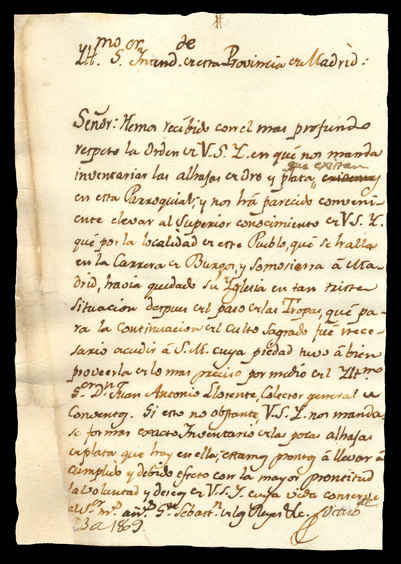 Yll.mo S.or Intend.de de esta Provincia de Madrid:
Señor: Hemos recibido con el mas profundo
respeto la Orden de V.S.Y. en qué nos manda
que existan
inventariar las alhajas de Oro y plata, existentes
en esta Parroquia; y nos há parecido conveni-
ente elevar al Superior conocimiento de V.S.Y.
qué por la localidad de este Pueblo, qué se halla
en la Carrera de Burgos, y Somosierra á Ma-
drid, havia quedado su Yglesia en tan triste
situacion despues del paso de las Tropas, qué pa-
ra la Continuacion del Culto Sagrado fué nece-
sario acudir á S.M. cuya piedad tuvo á bien
proveerla de lo mas preciso por medio del Yll.mo
S.or D.n Juan Antonio Llorente, Colector general de
Conventos. Si esto no obstante, V.S.Y. nos manda,
se forme exacto Inventario de las pocas alhajas
de plata que hay en ella, estamos prontos á llevar á
cumplido y debido efeto con la mayor prontitud
la voluntad y deseos de V.S.Y. cuya vida conserve
el S.or m.s añ.s S.n Sebast.n de los Reyes &c. Octu.e
23 de 1809.